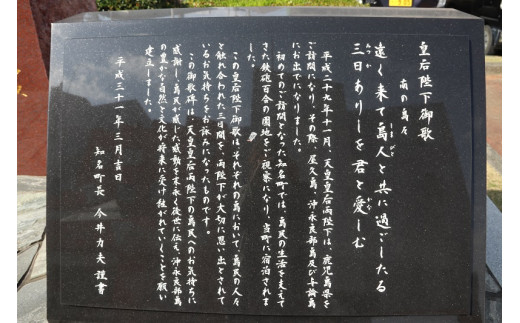 皇后陛下御歌
南の島々
遠く来て島人と共に過ごしたる
三日ありしを君と愛しむ
平成二十九年十一月、天皇皇后両陛下は、鹿児島県を
ご訪問になり、その際、屋久島、沖永良部島及び与論島
にお出でになりました。
初めてのご訪問となった知名町では、島民の生活を支えて
きた鉄砲百合の園地をご視察になり、当町に宿泊されま
した。
この皇后陛下御歌は、それぞれの島において、島民の人々
と触れ合われた三日間を、両陛下が大切に思い出とされて
いるお気持ちをお詠みになったものです。
この御歌碑は、天皇皇后両陛下の島民へのお気持ちに
感謝し、島民が感じた感動を末永く後世に伝え、沖永良部島
の豊かな自然と文化が将来に受け継がれていくことを願い
建立しました。
平成三十一年三月吉日
知名町長 今井力夫 謹書